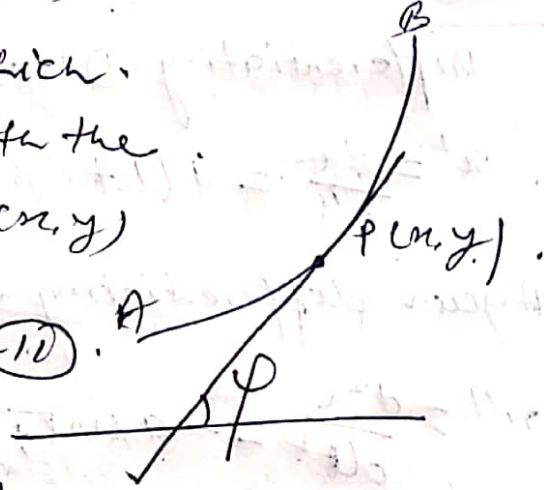 B
hich.
th the.
(x, y)
P(x, y).
A
ψ